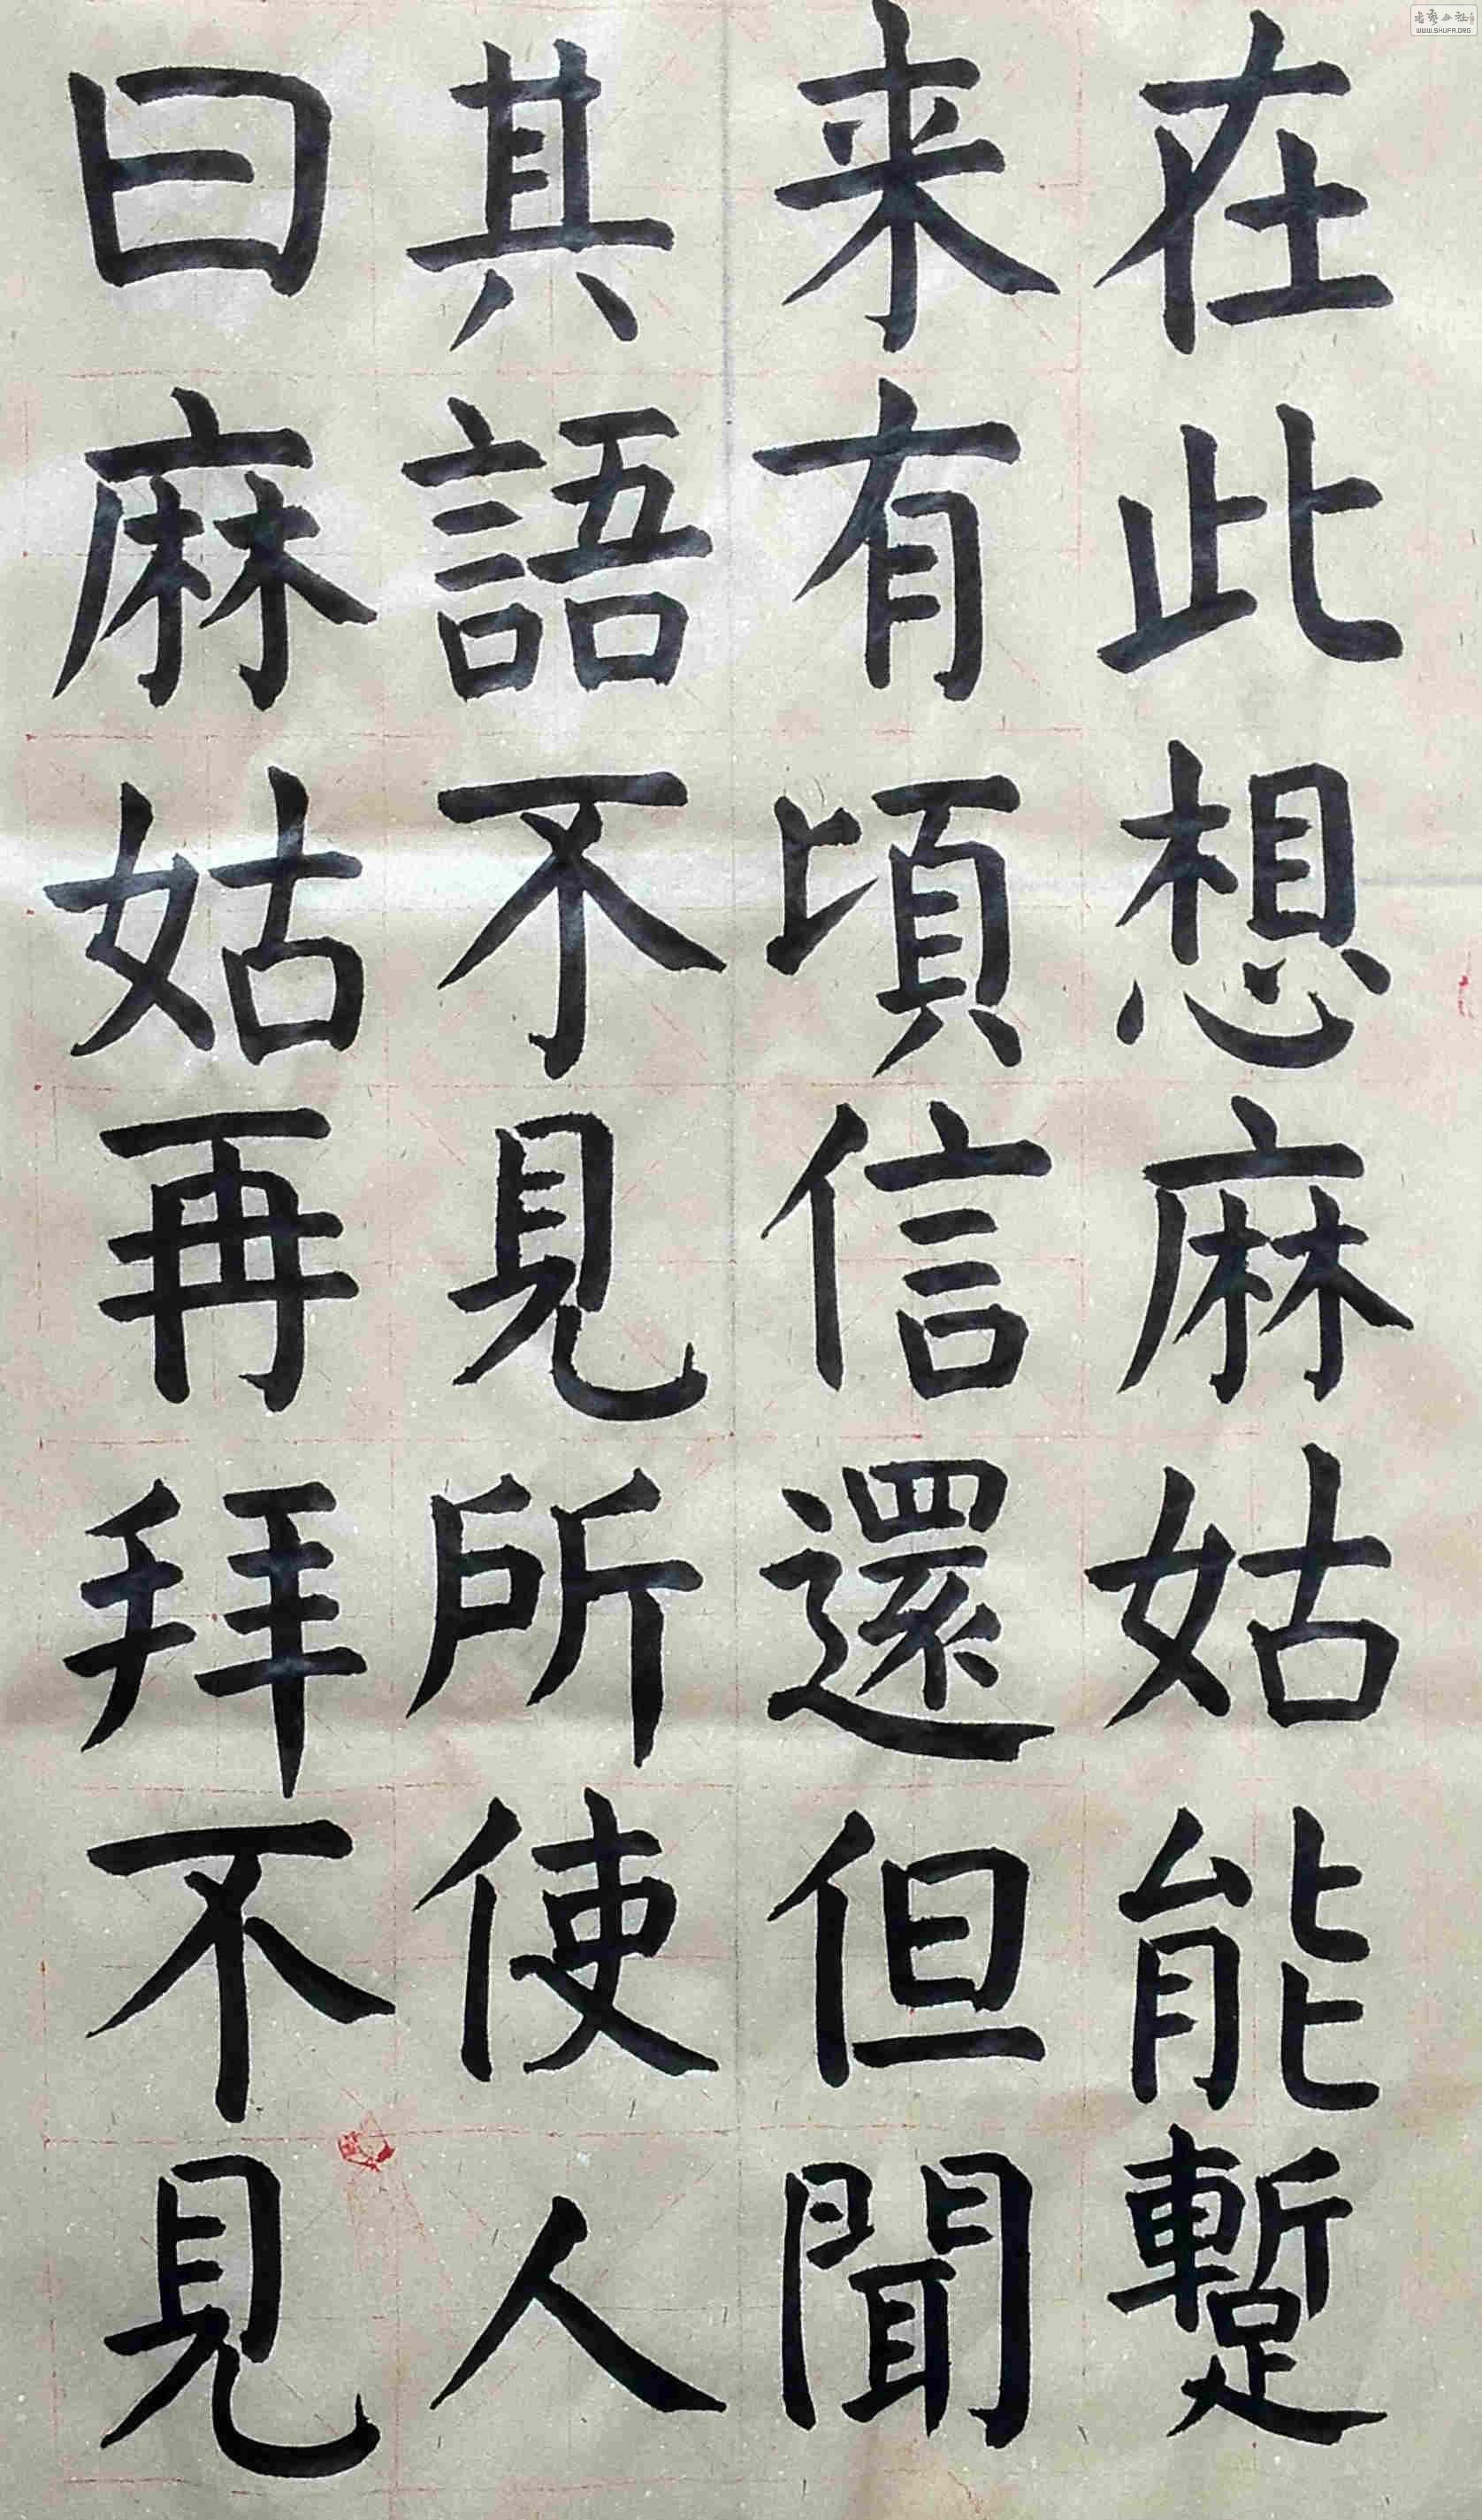 在此想麻姑能蹔
来有頃信還但聞
其語不見所使人
曰麻姑再拜不見
WWW.SHUFA.ORG